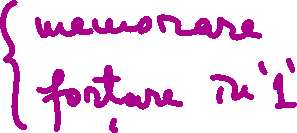 memorare
forțare în '1'